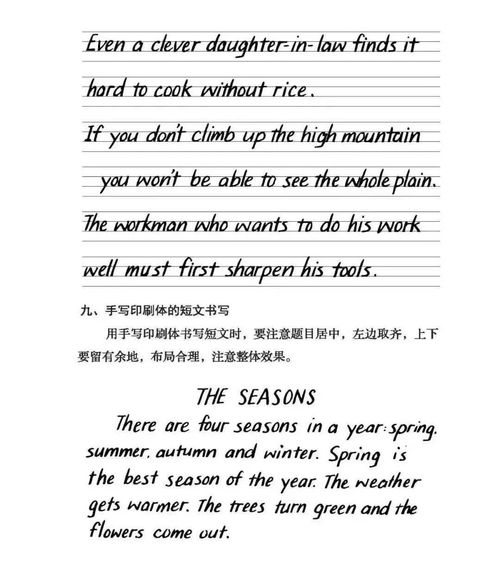 Even a clever daughter-in-law finds it
hard to cook without rice.
If you don't climb up the high mountain
you won't be able to see the whole plain.
The workman who wants to do his work
well must first sharpen his tools.
九、手写印刷体的短文书写
用手写印刷体书写短文时，要注意题目居中，左边取齐，上下
要留有余地，布局合理，注意整体效果。
THE SEASONS
There are four seasons in a year: spring,
summer, autumn and winter. Spring is
the best season of the year. The weather
gets warmer. The trees turn green and the
flowers come out.